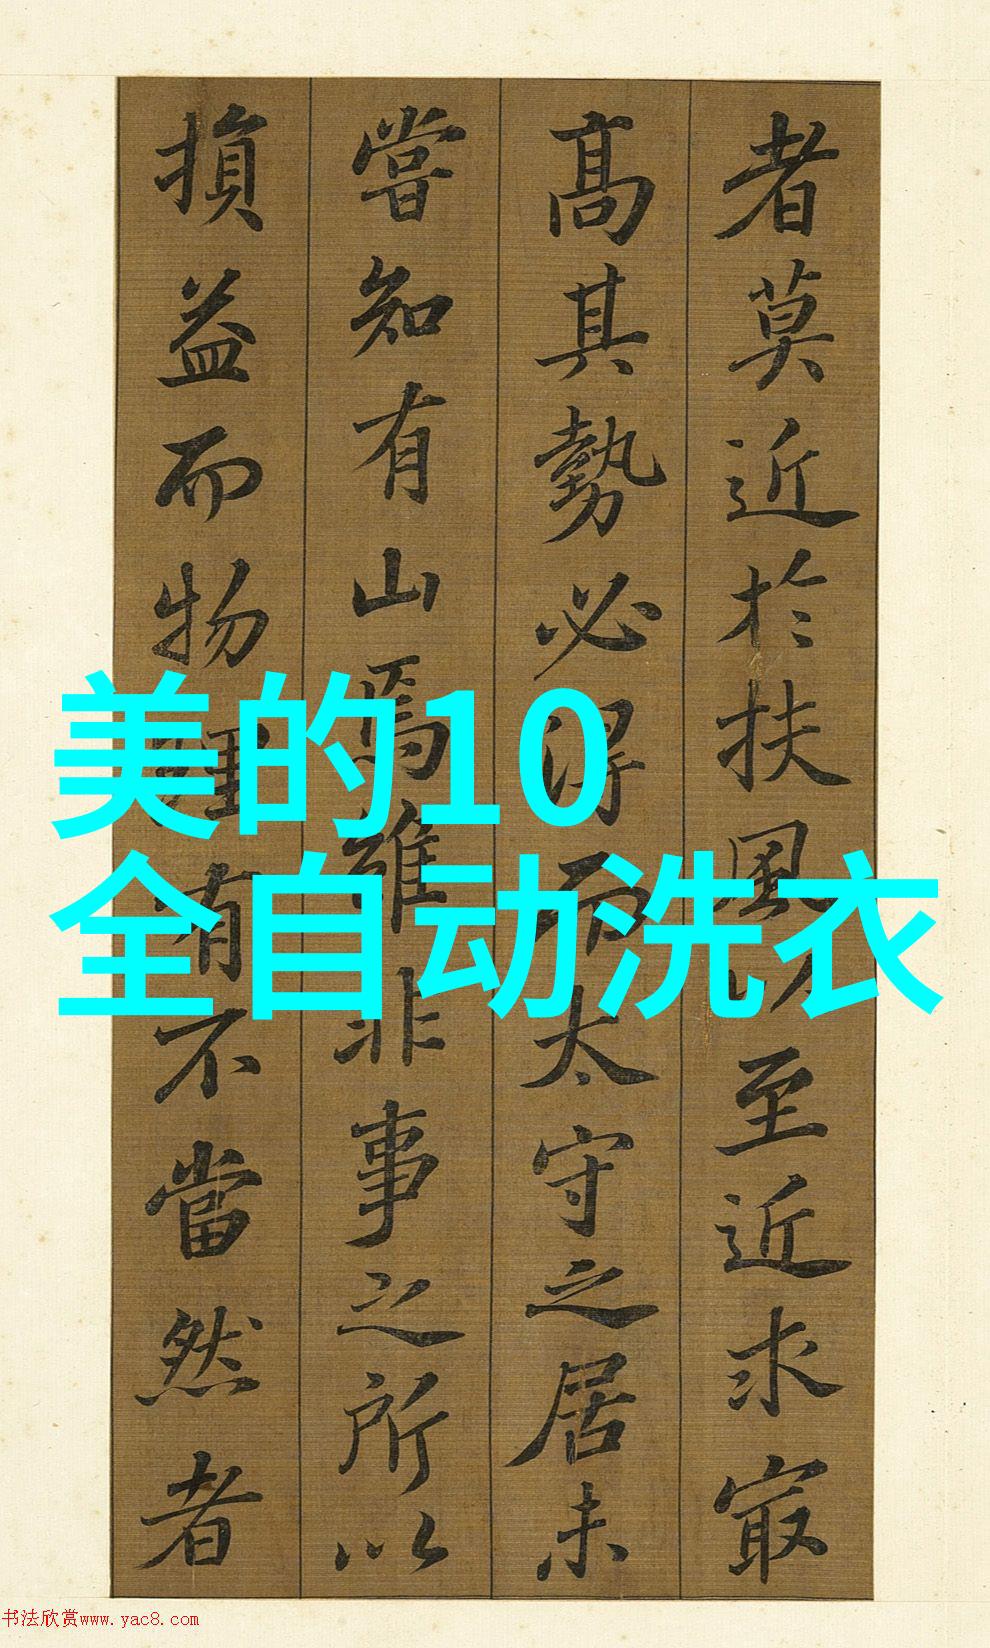 者莫近於扶風以至近求㝡
髙其勢必得而太守之居未
嘗知有山焉雖非事之所以
損益而物理有不當然者
美的10
全自动洗衣
书法欣赏www.yac8.com